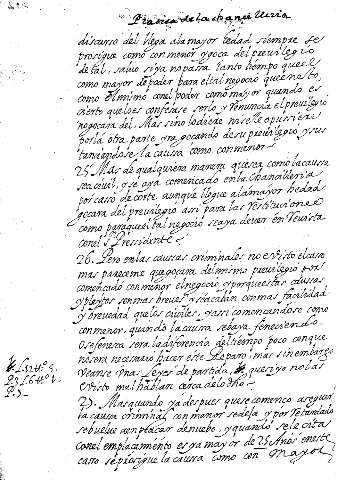 Pratica de la chancilleria
discurso del llega a la mayor hedad siempre se
prosigue como con menor y goca del previlegio
de tal, salvo si ya no pasa tanto tiempo que se
como mayor de poder para el tal negocio que en esto,
como el mismo con el poder como mayor quando es
cierto que el se confesase serlo y renuncia el previlegio
negocara del. Mas sino lo dice no se le opusiere
por la otra parte yra gocando de su previlegio y sus
tanciandose la causa como con menor.
25. Mas de qualquiera manera que sea como la causa
sea civil, y se aya comencado en la Chancilleria
por caso de corte, aunque llegue a la mayor hedad
gocara del previlegio asi para las restituciones
como para que el tal negocio se aya de ver en Revista
con el Presidente
26. Pero en las causas criminales no e visto el caso
mas pareceme que gocara del mismo previlegio por
comencado con menor el negocio y porque estas causas
y pleytos son mas breves y se acaban con mas facilidad
y brevedad que los civiles, y assi comencandose como
con menor quando la causa se baya feneciendo
o se fenezca sera la diferencia del tiempo poco con que
no sera necesario hacer este Reparo, mas sin embargo
veanse unas Leyes de partida, que si yo no las
e visto mal hablan cerca de lo dho.
27. Mas quando ya despues que se comenco a seguir
la causa criminal con menor se dexa y por retardado
se buelve a enplacar de nuebo, y quando se le cita
con el emplacamiento es ya mayor de 25 Años en este
caso se prosigue la causa como con mayor